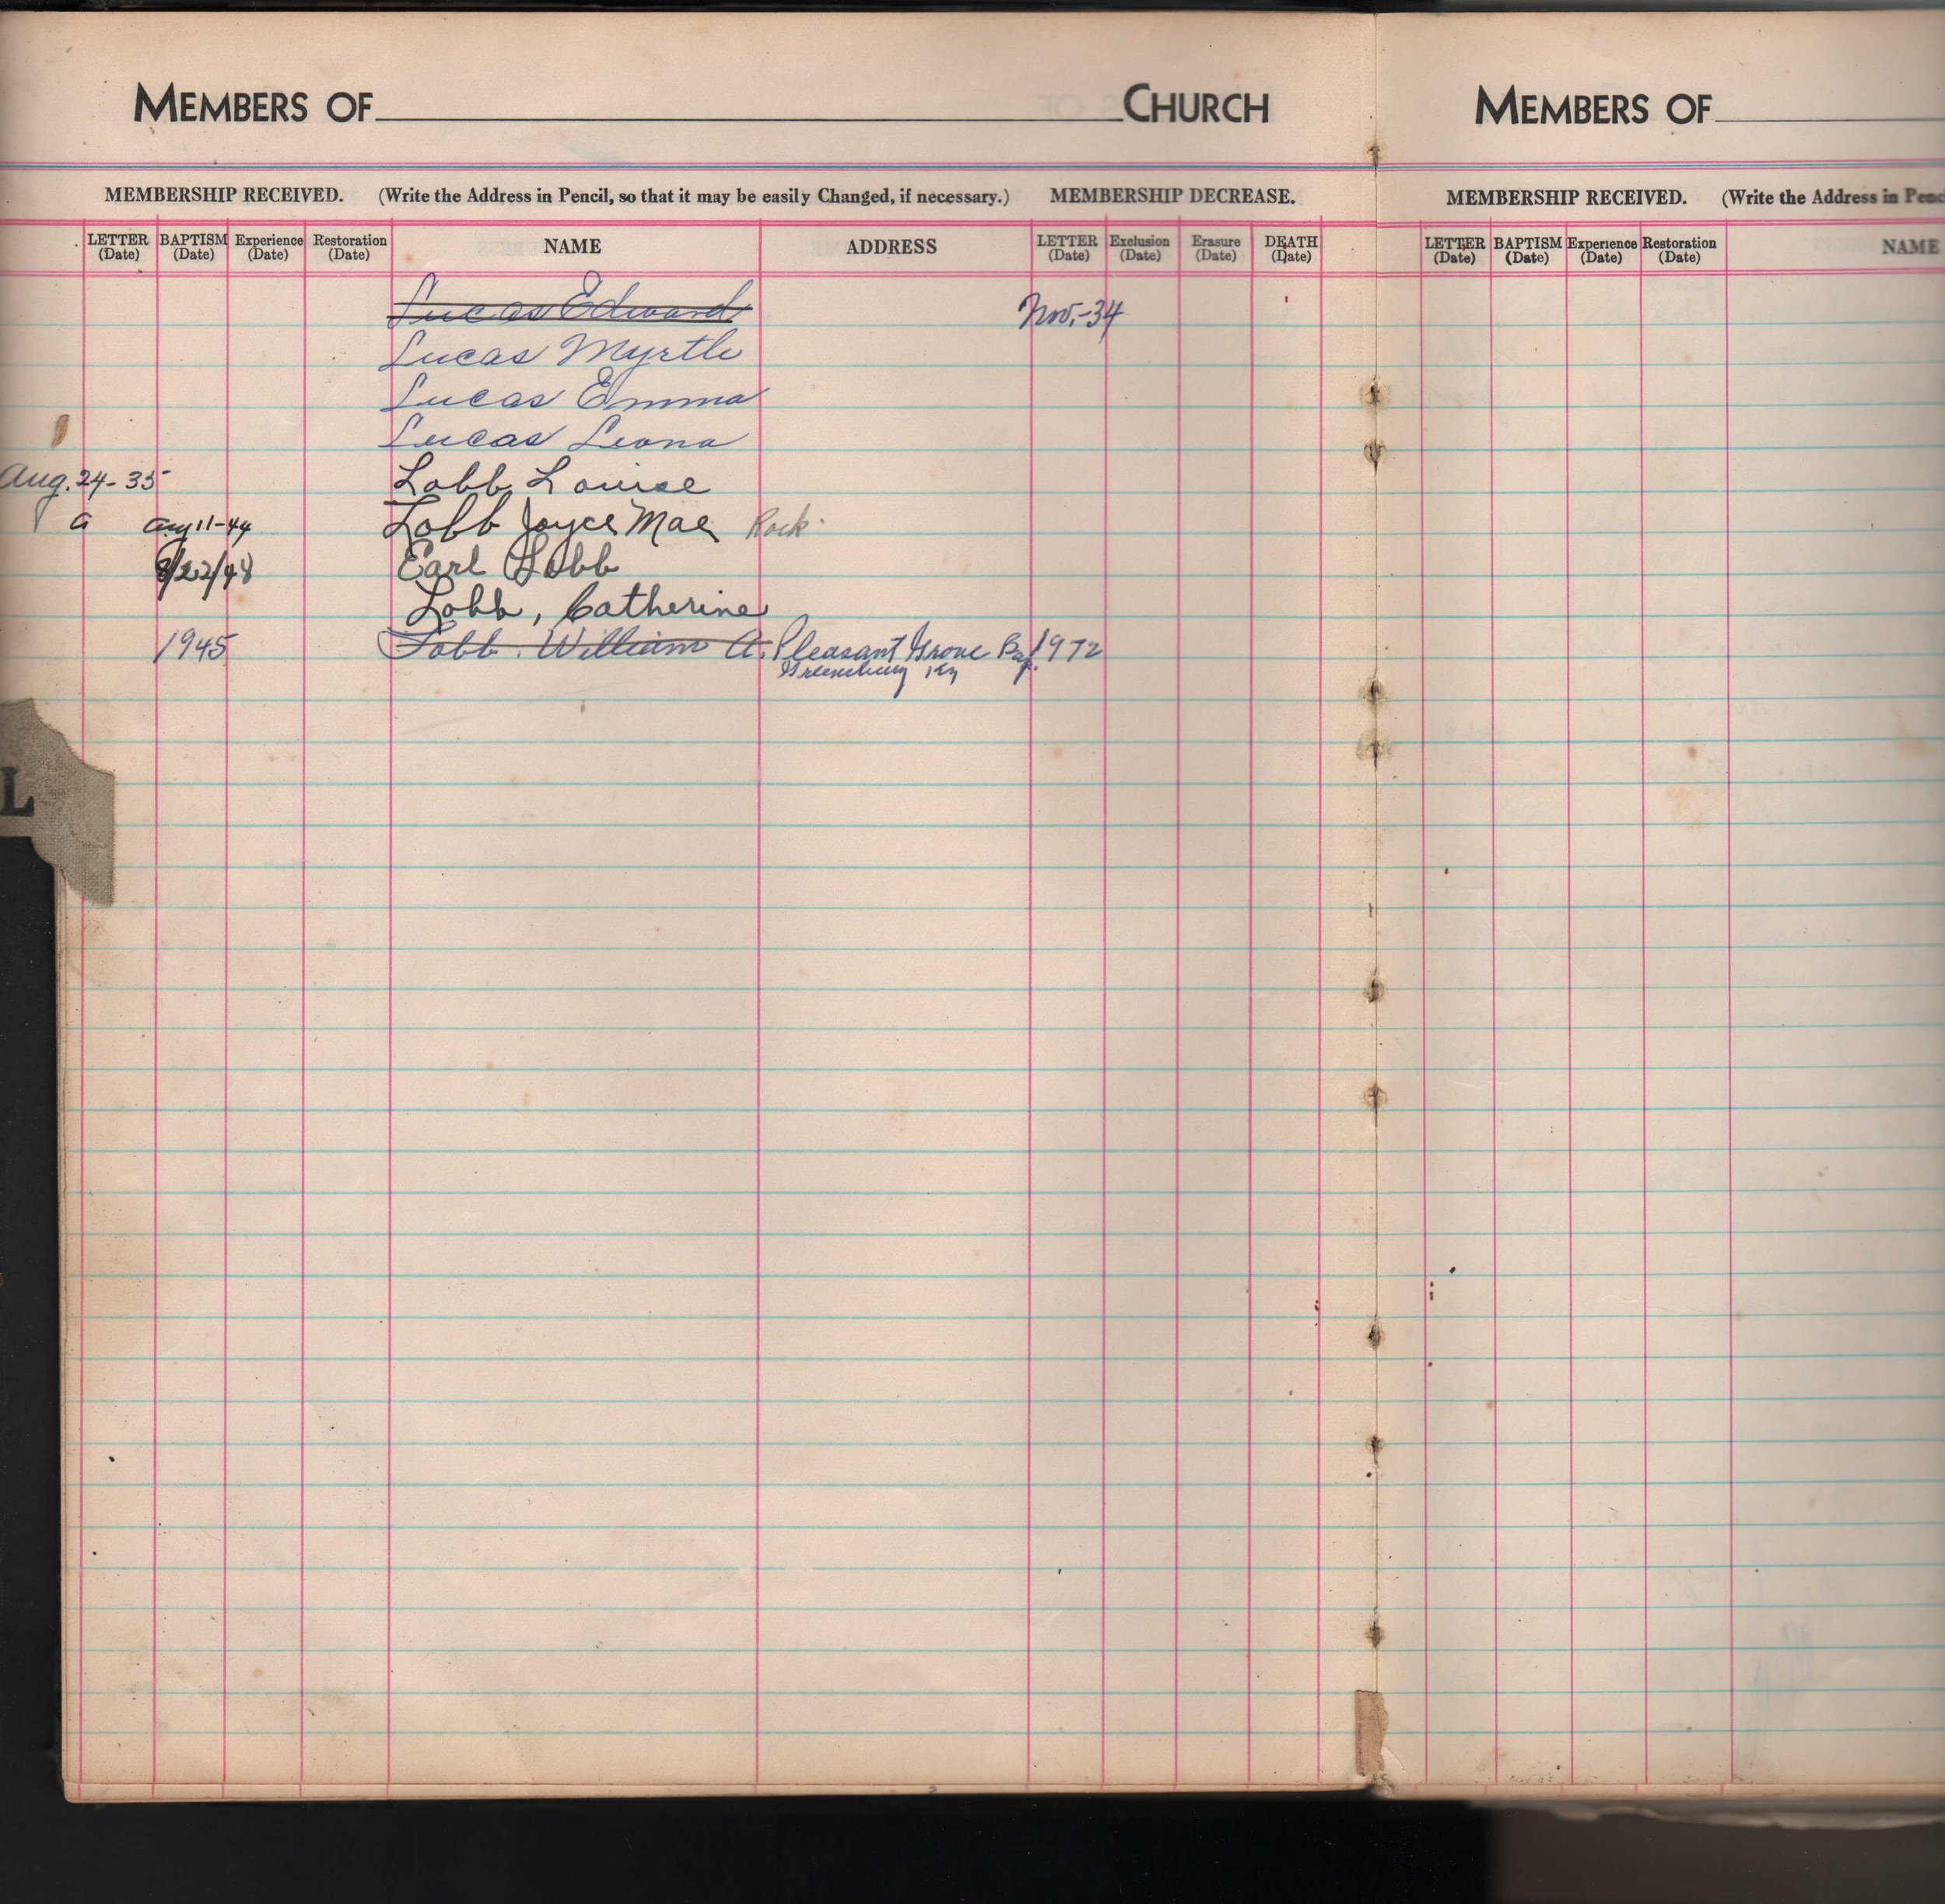 MEMBERS OF CHURCH
MEMBERSHIP RECEIVED. (Write the Address in Pencil, so that it may be easily Changed, if necessary.) MEMBERSHIP DECREASE.
LETTER (Date) BAPTISM (Date) Experience (Date) Restoration (Date) NAME ADDRESS LETTER (Date) Exclusion (Date) Erasure (Date) DEATH (Date)
Lucas Edward Nov.-34
Lucas Myrtle
Lucas Emma
Lucas Leona
Aug. 24-35 Lobb Louise
a Aug 11-44 Lobb Joyce Mae Rock
8/22/48 Earl Lobb
Lobb, Catherine
1945 Lobb. William A. Pleasant Grove Bap. 1972
Greensburg Ky
L
MEMBERS OF
MEMBERSHIP RECEIVED. (Write the Address in Penc
LETTER (Date) BAPTISM (Date) Experience (Date) Restoration (Date) NAME